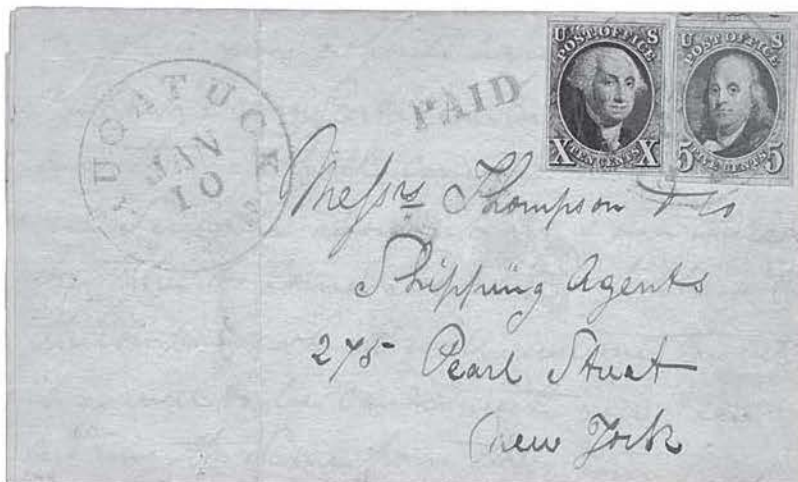 UGATUCK
JAN
10
PAID
U S
POST OFFICE
X TEN CENTS X
U S
POST OFFICE
5 FIVE CENTS 5
Messrs Thompson & Co
Shipping Agents
275 Pearl Street
New York